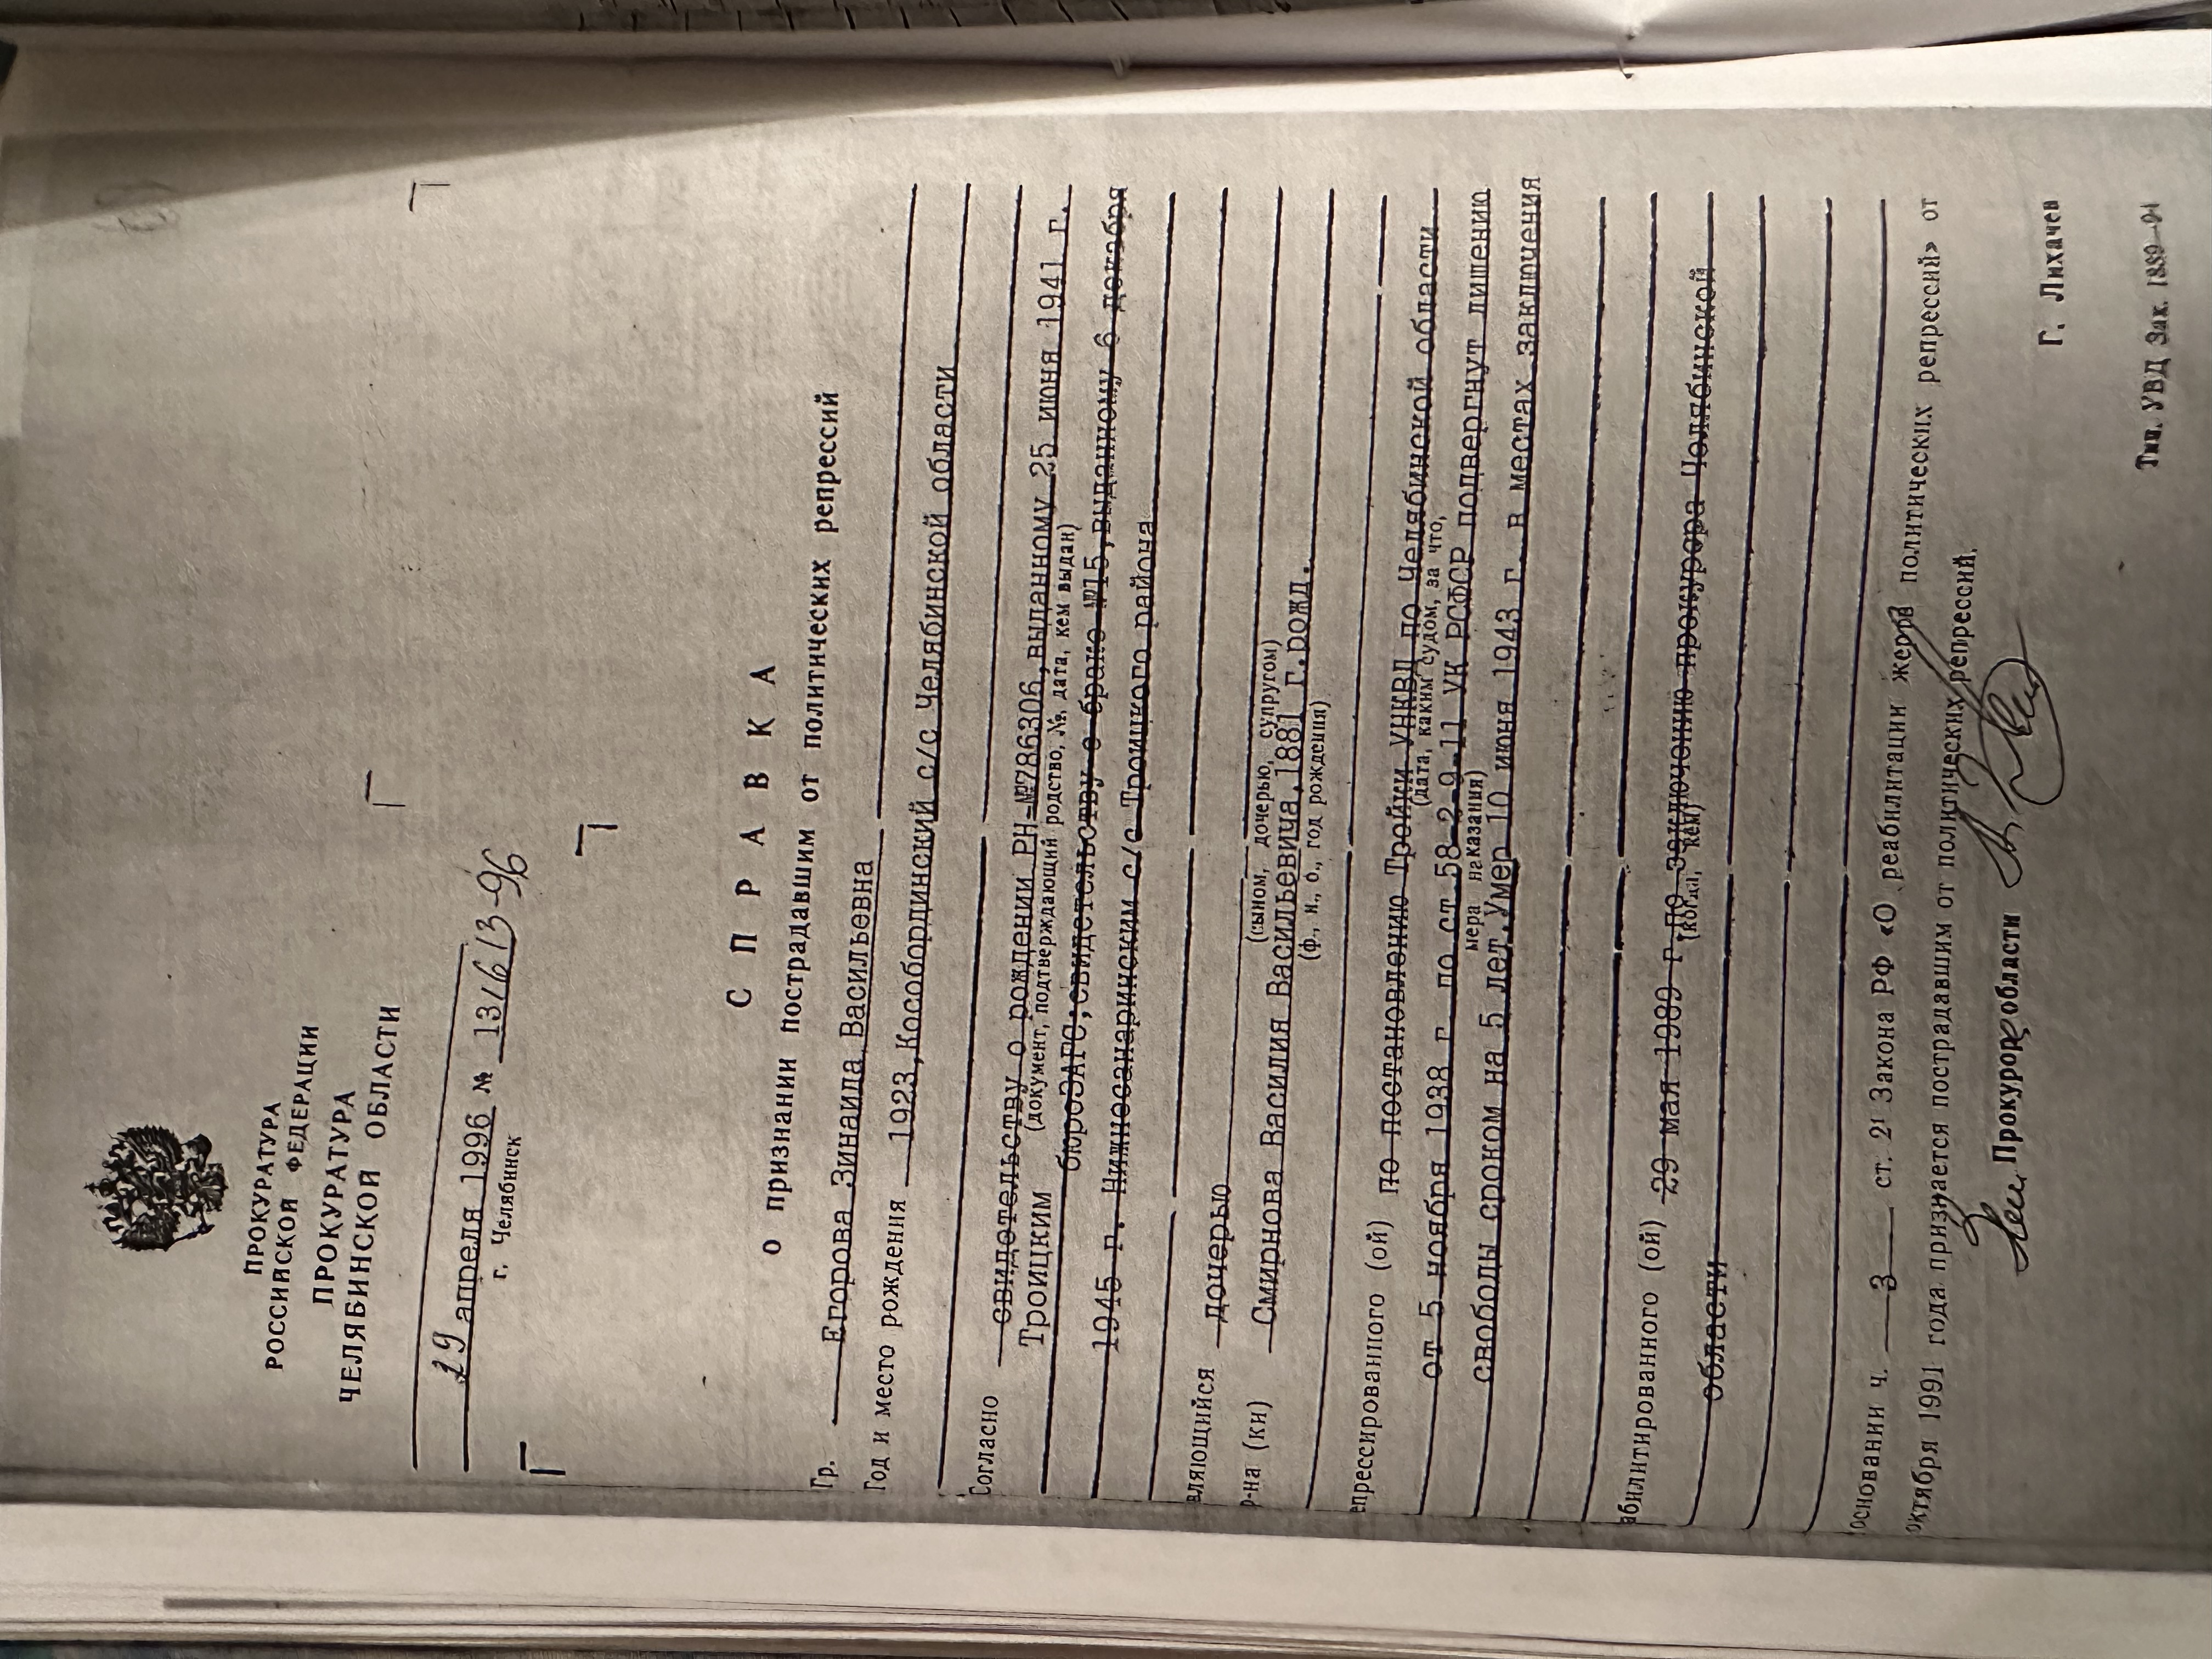 ПРОКУРАТУРА
РОССИЙСКОЙ ФЕДЕРАЦИИ
ПРОКУРАТУРА
ЧЕЛЯБИНСКОЙ ОБЛАСТИ
29 апреля 1996 № 13/613-96
г. Челябинск
СПРАВКА
о признании пострадавшим от политических репрессий
Гр. Егорова Зинаида Васильевна
Год и место рождения 1923, Кособординский с/с Челябинской области
Согласно свидетельству о рождении РН-№786306, выданному 25 июня 1941 г.
Троицким (документ, подтверждающий родство, №, дата, кем выдан)
бюроЗАГС; свидетельству о браке №15, выданному 6 декабря
1945 г. Нижнесанаринским с/с Троицкого района
вляющийся дочерью
(сыном, дочерью, супругом)
р-на (ки) Смирнова Василия Васильевича, 1881 г.рожд.
(ф., и., о., год рождения)
епрессированного (ой) по постановлению Тройки УНКВД по Челябинской области
(дата, каким судом, за что,
от 5 ноября 1938 г по ст.58-2-9-11 УК РСФСР подвергнут лишению
мера наказания)
свободы сроком на 5 лет. Умер 10 июня 1943 г. в местах заключения
абилитированного (ой) 29 мая 1989 г. по заключению прокурора Челябинской
(когда, кем)
области
основании ч. 3 ст. 2¹ Закона РФ «О реабилитации жертв политических репрессий» от
октября 1991 года признается пострадавшим от политических репрессий.
Зам. Прокурор области
Г. Лихачев
Тип. УВД Зак. 1889-94